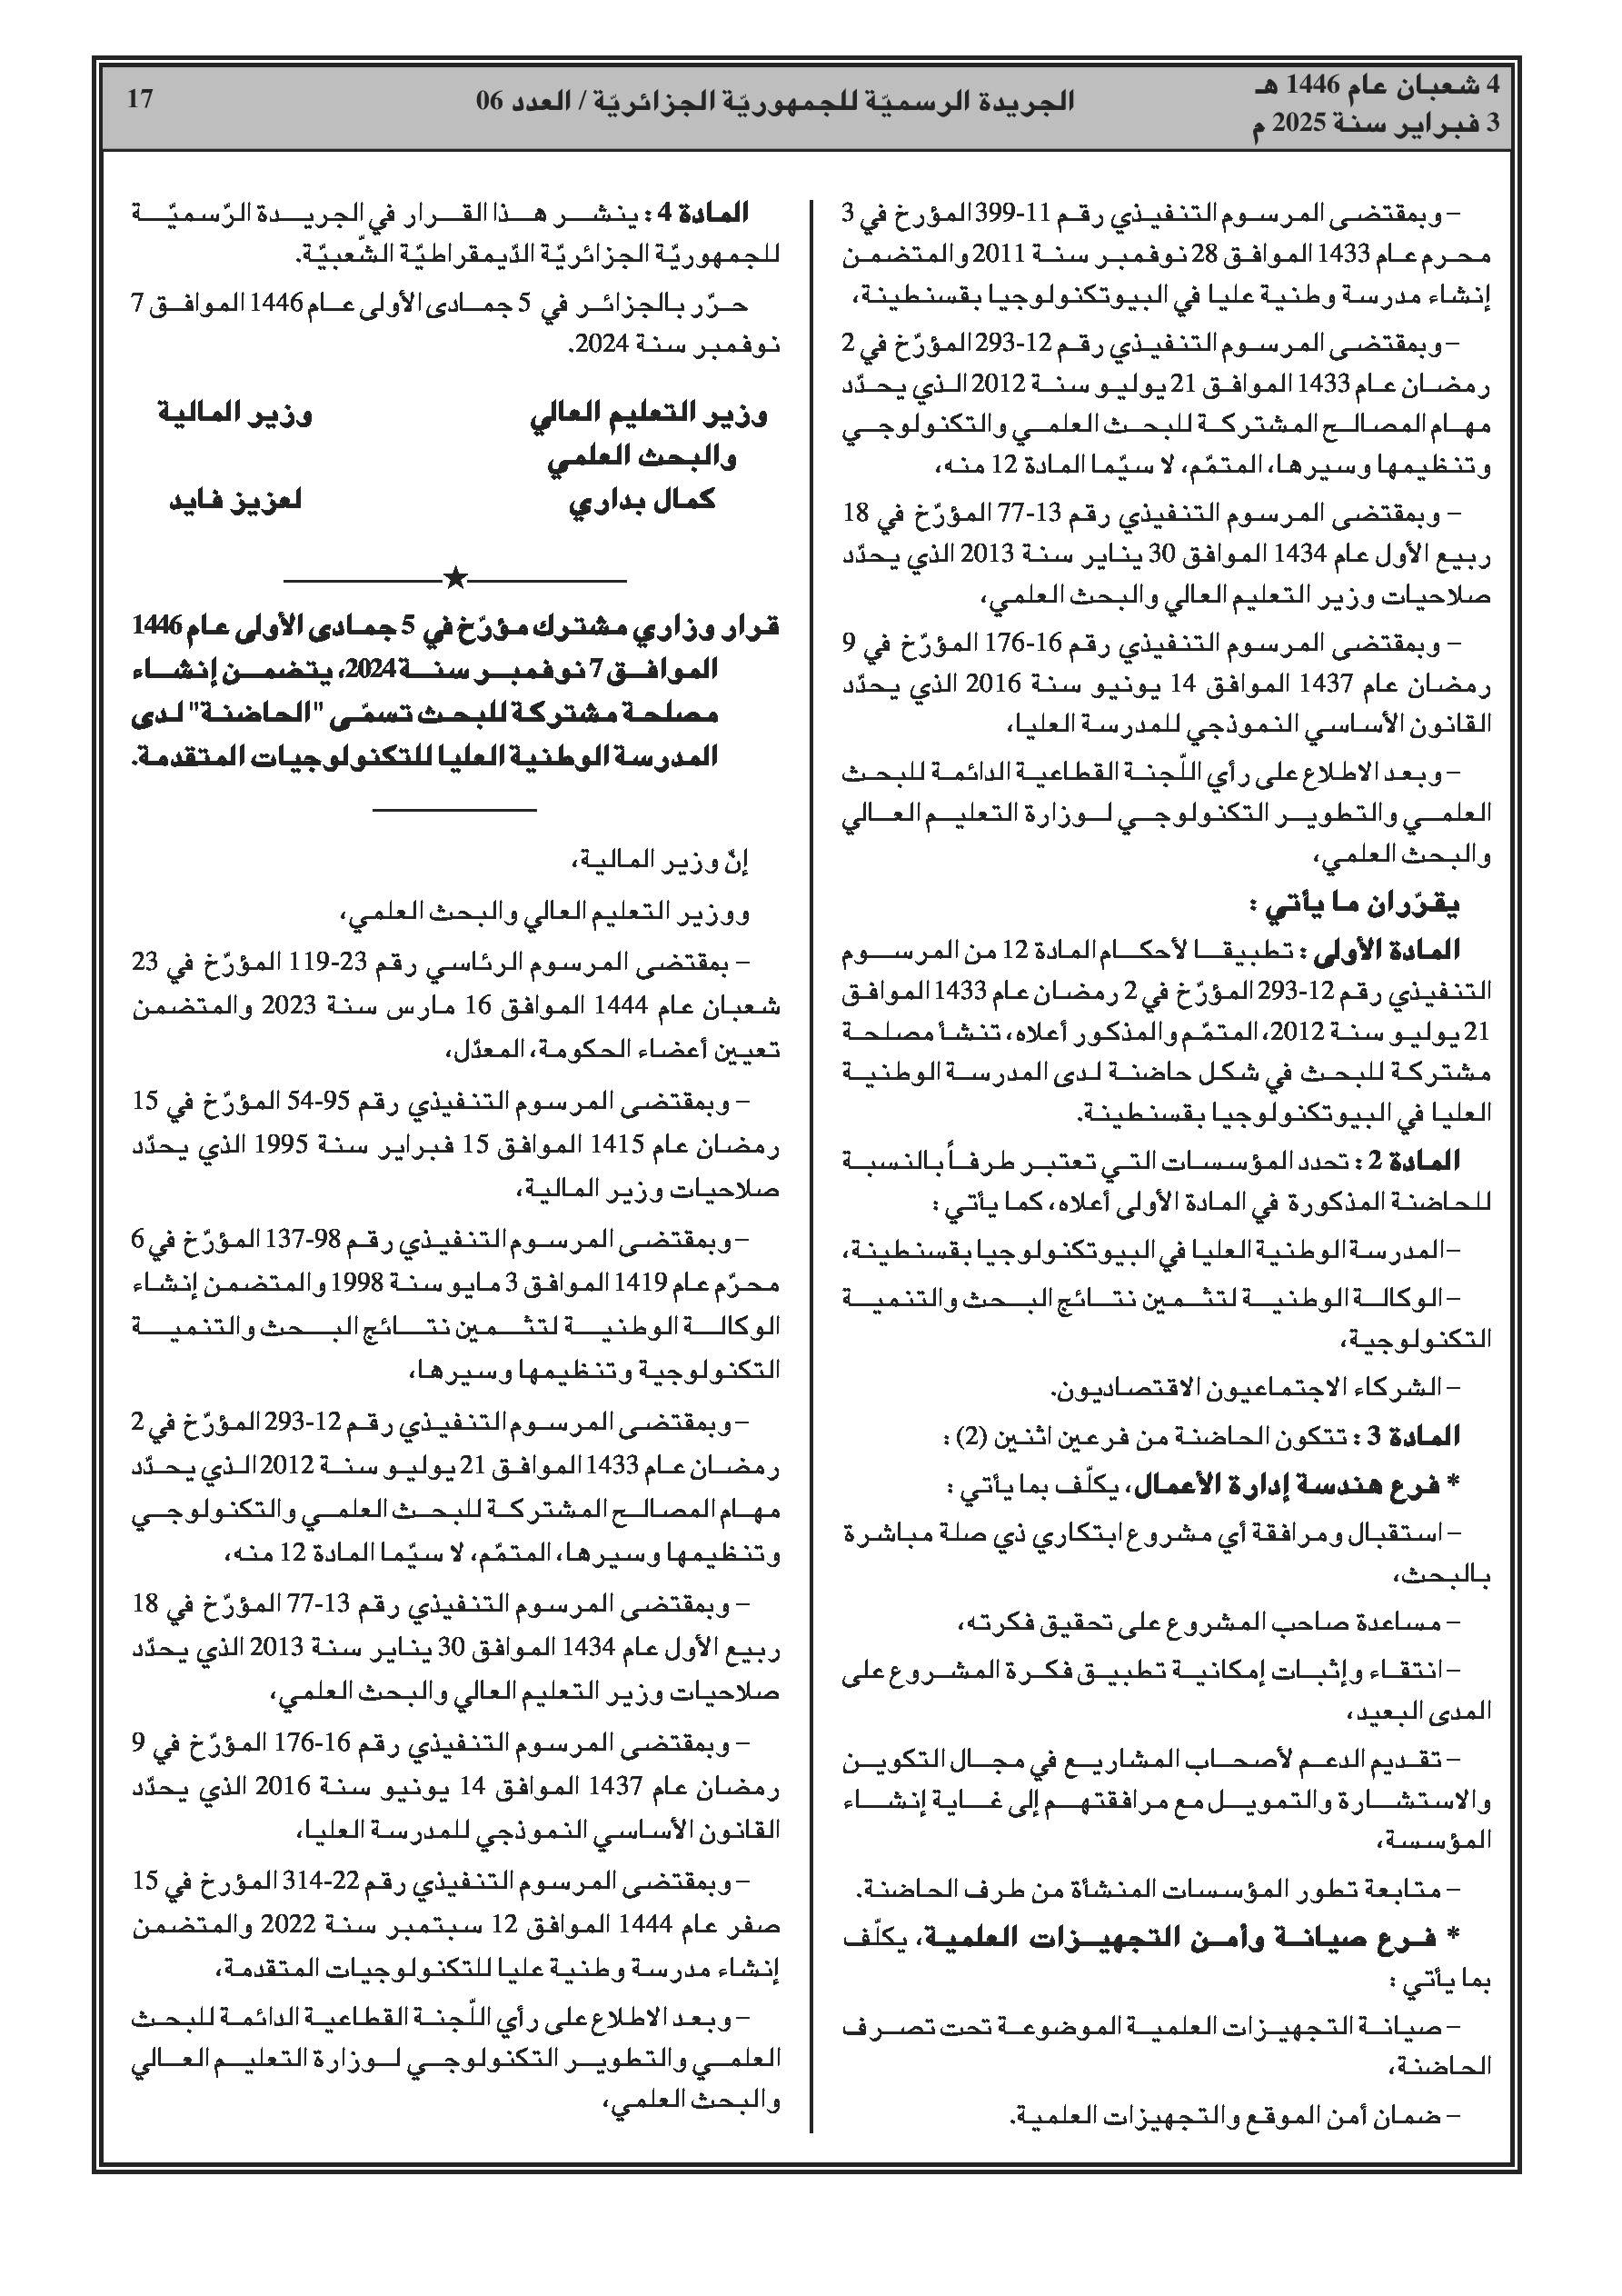 4 شعبان عام 1446 هـ
3 فبراير سنة 2025 م
الجريدة الرسميّة للجمهوريّة الجزائريّة / العدد 06
17
– وبمقتضى المرسوم التنفيذي رقم 11-399 المؤرخ في 3
محرم عام 1433 الموافق 28 نوفمبر سنة 2011 والمتضمن
إنشاء مدرسة وطنية عليا في البيوتكنولوجيا بقسنطينة،
– وبمقتضى المرسوم التنفيذي رقم 12-293 المؤرّخ في 2
رمضان عام 1433 الموافق 21 يوليو سنة 2012 الذي يحدّد
مهام المصالح المشتركة للبحث العلمي والتكنولوجي
وتنظيمها وسيرها، المتمّم، لا سيّما المادة 12 منه،
– وبمقتضى المرسوم التنفيذي رقم 13-77 المؤرّخ في 18
ربيع الأول عام 1434 الموافق 30 يناير سنة 2013 الذي يحدّد
صلاحيات وزير التعليم العالي والبحث العلمي،
– وبمقتضى المرسوم التنفيذي رقم 16-176 المؤرّخ في 9
رمضان عام 1437 الموافق 14 يونيو سنة 2016 الذي يحدّد
القانون الأساسي النموذجي للمدرسة العليا،
– وبعد الاطلاع على رأي اللّجنة القطاعية الدائمة للبحث
العلمي والتطوير التكنولوجي لوزارة التعليم العالي
والبحث العلمي،
يقرّران ما يأتي :
المادة الأولى : تطبيقا لأحكام المادة 12 من المرسوم
التنفيذي رقم 12-293 المؤرّخ في 2 رمضان عام 1433 الموافق
21 يوليو سنة 2012، المتمّم والمذكور أعلاه، تنشأ مصلحة
مشتركة للبحث في شكل حاضنة لدى المدرسة الوطنية
العليا في البيوتكنولوجيا بقسنطينة.
المادة 2 : تحدد المؤسسات التي تعتبر طرفاً بالنسبة
للحاضنة المذكورة في المادة الأولى أعلاه، كما يأتي :
– المدرسة الوطنية العليا في البيوتكنولوجيا بقسنطينة،
– الوكالة الوطنية لتثمين نتائج البحث والتنمية
التكنولوجية،
– الشركاء الاجتماعيون الاقتصاديون.
المادة 3 : تتكون الحاضنة من فرعين اثنين (2) :
* فرع هندسة إدارة الأعمال، يكلّف بما يأتي :
– استقبال ومرافقة أي مشروع ابتكاري ذي صلة مباشرة
بالبحث،
– مساعدة صاحب المشروع على تحقيق فكرته،
– انتقاء وإثبات إمكانية تطبيق فكرة المشروع على
المدى البعيد،
– تقديم الدعم لأصحاب المشاريع في مجال التكوين
والاستشارة والتمويل مع مرافقتهم إلى غاية إنشاء
المؤسسة،
– متابعة تطور المؤسسات المنشأة من طرف الحاضنة.
* فرع صيانة وأمن التجهيزات العلمية، يكلّف
بما يأتي :
– صيانة التجهيزات العلمية الموضوعة تحت تصرف
الحاضنة،
– ضمان أمن الموقع والتجهيزات العلمية.
المادة 4 : ينشر هذا القرار في الجريدة الرّسميّة
للجمهوريّة الجزائريّة الدّيمقراطيّة الشّعبيّة.
حرّر بالجزائر في 5 جمادى الأولى عام 1446 الموافق 7
نوفمبر سنة 2024.
وزير التعليم العالي
والبحث العلمي
كمال بداري
وزير المالية
لعزيز فايد
قرار وزاري مشترك مؤرّخ في 5 جمادى الأولى عام 1446
الموافق 7 نوفمبر سنة 2024، يتضمن إنشاء
مصلحة مشتركة للبحث تسمّى "الحاضنة" لدى
المدرسة الوطنية العليا للتكنولوجيات المتقدمة.
إنّ وزير المالية،
ووزير التعليم العالي والبحث العلمي،
– بمقتضى المرسوم الرئاسي رقم 23-119 المؤرّخ في 23
شعبان عام 1444 الموافق 16 مارس سنة 2023 والمتضمن
تعيين أعضاء الحكومة، المعدّل،
– وبمقتضى المرسوم التنفيذي رقم 95-54 المؤرّخ في 15
رمضان عام 1415 الموافق 15 فبراير سنة 1995 الذي يحدّد
صلاحيات وزير المالية،
– وبمقتضى المرسوم التنفيذي رقم 98-137 المؤرّخ في 6
محرّم عام 1419 الموافق 3 مايو سنة 1998 والمتضمن إنشاء
الوكالة الوطنية لتثمين نتائج البحث والتنمية
التكنولوجية وتنظيمها وسيرها،
– وبمقتضى المرسوم التنفيذي رقم 12-293 المؤرّخ في 2
رمضان عام 1433 الموافق 21 يوليو سنة 2012 الذي يحدّد
مهام المصالح المشتركة للبحث العلمي والتكنولوجي
وتنظيمها وسيرها، المتمّم، لا سيّما المادة 12 منه،
– وبمقتضى المرسوم التنفيذي رقم 13-77 المؤرّخ في 18
ربيع الأول عام 1434 الموافق 30 يناير سنة 2013 الذي يحدّد
صلاحيات وزير التعليم العالي والبحث العلمي،
– وبمقتضى المرسوم التنفيذي رقم 16-176 المؤرّخ في 9
رمضان عام 1437 الموافق 14 يونيو سنة 2016 الذي يحدّد
القانون الأساسي النموذجي للمدرسة العليا،
– وبمقتضى المرسوم التنفيذي رقم 22-314 المؤرخ في 15
صفر عام 1444 الموافق 12 سبتمبر سنة 2022 والمتضمن
إنشاء مدرسة وطنية عليا للتكنولوجيات المتقدمة،
– وبعد الاطلاع على رأي اللّجنة القطاعية الدائمة للبحث
العلمي والتطوير التكنولوجي لوزارة التعليم العالي
والبحث العلمي،